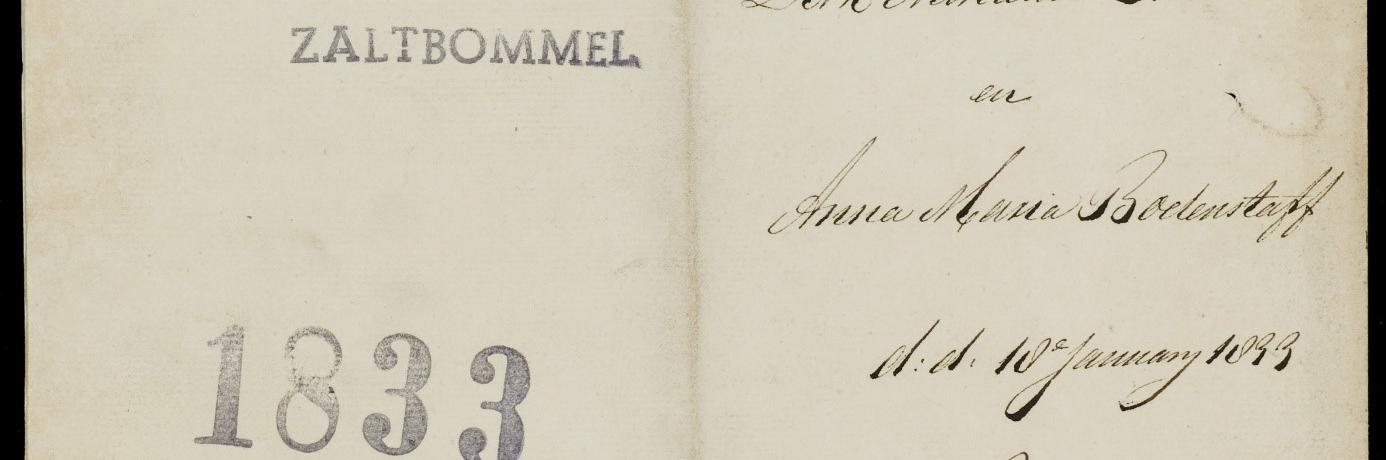 ZALTBOMMEL
1833
en
Anna Maria Bodenstaff
d: d: 18e January 1833